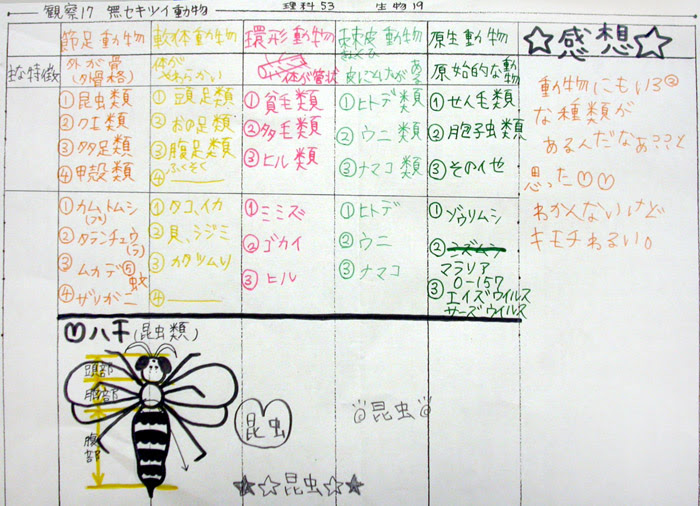 観察17 無セキツイ動物
理科53 生物19
節足動物 軟体動物 環形動物 棘皮動物 原生動物 ☆感想☆
主な特徴
外が骨
(外骨格)
体が
やわらかい
体が管状
皮にとげがある
原始的な動物
①昆虫類
②クモ類
③多足類
④甲殻類
①頭足類
②おの足類
③腹足類
ふくそく
④
①貧毛類
②多毛類
③ヒル類
①ヒトデ類
②ウニ類
③ナマコ類
①せん毛類
②胞子虫類
③その他
①カムトムシ
②
③ムカデ
④ザリガニ
①タコ、イカ
②貝、シジミ
③カタツムリ
④
①ミミズ
②ゴカイ
③ヒル
①ヒトデ
②ウニ
③ナマコ
①ゾウリムシ
②ミズムシ
マラリア
③O-157
エイズウイルス
サーズウイルス
動物にもいろ②
な種類が
あるんだなぁ??と
思った♡♡
わかんないけど
キモチわるい。
♡ハチ(昆虫類)
頭部
胸部
腹部
昆虫
昆虫
★☆昆虫☆★